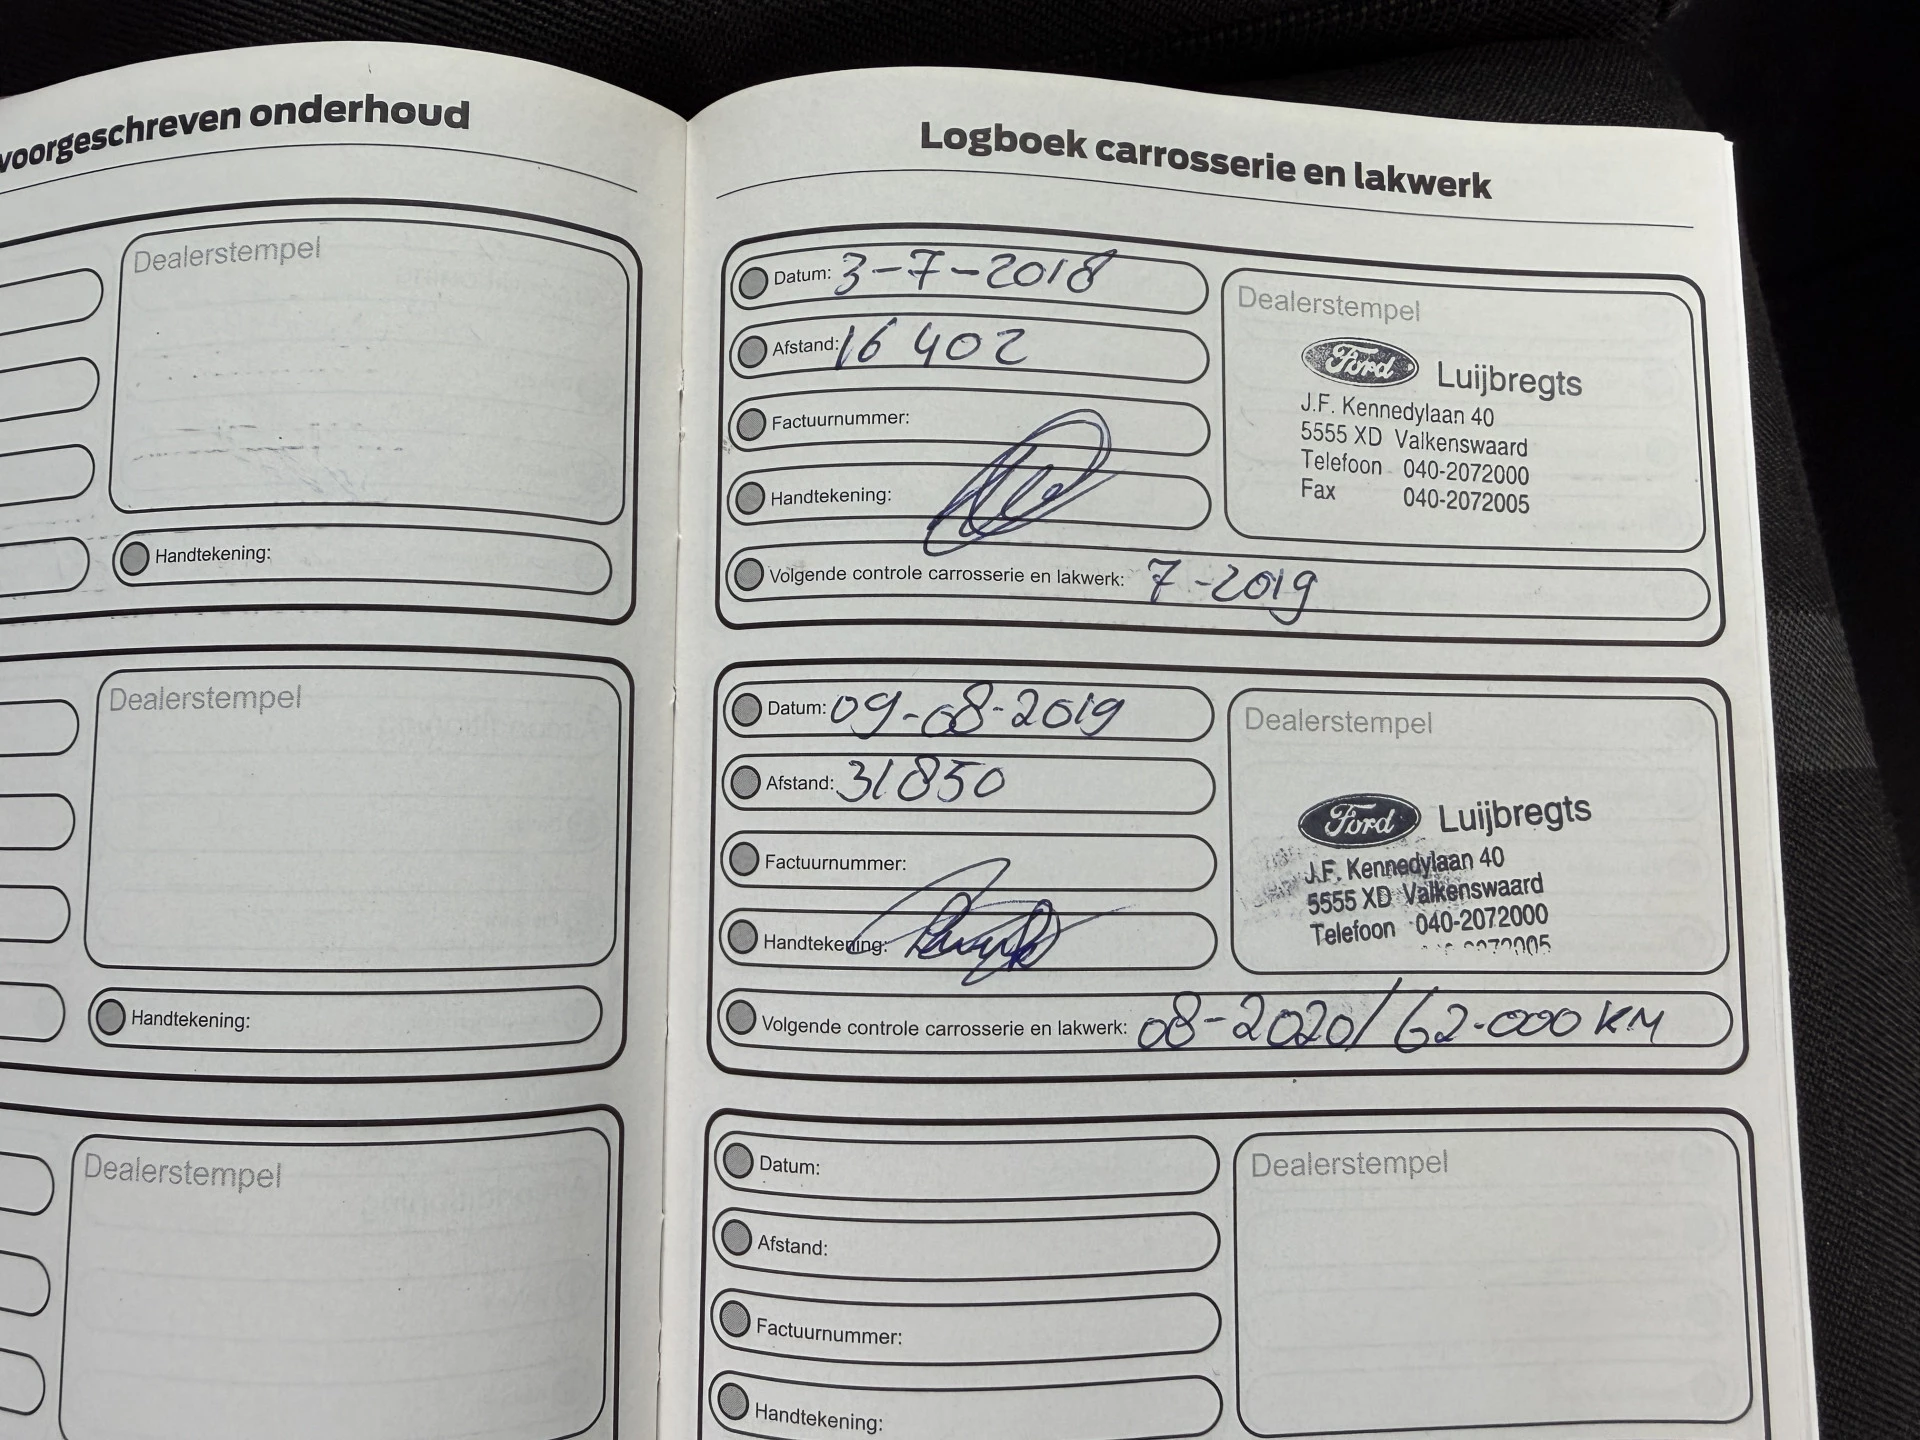 voorgeschreven onderhoud
Dealerstempel
Handtekening:
Dealerstempel
Handtekening:
Dealerstempel
Logboek carrosserie en lakwerk
Datum: 3-7-2018
Afstand: 16 402
Factuurnummer:
Handtekening:
Volgende controle carrosserie en lakwerk: 7-2019
Dealerstempel
Ford Luijbregts
J.F. Kennedylaan 40
5555 XD Valkenswaard
Telefoon 040-2072000
Fax 040-2072005
Datum: 09-08-2019
Afstand: 31850
Factuurnummer:
Handtekening:
Volgende controle carrosserie en lakwerk: 08-2020/62.000 KM
Dealerstempel
Ford Luijbregts
J.F. Kennedylaan 40
5555 XD Valkenswaard
Telefoon 040-2072000
Datum:
Afstand:
Factuurnummer:
Handtekening:
Dealerstempel